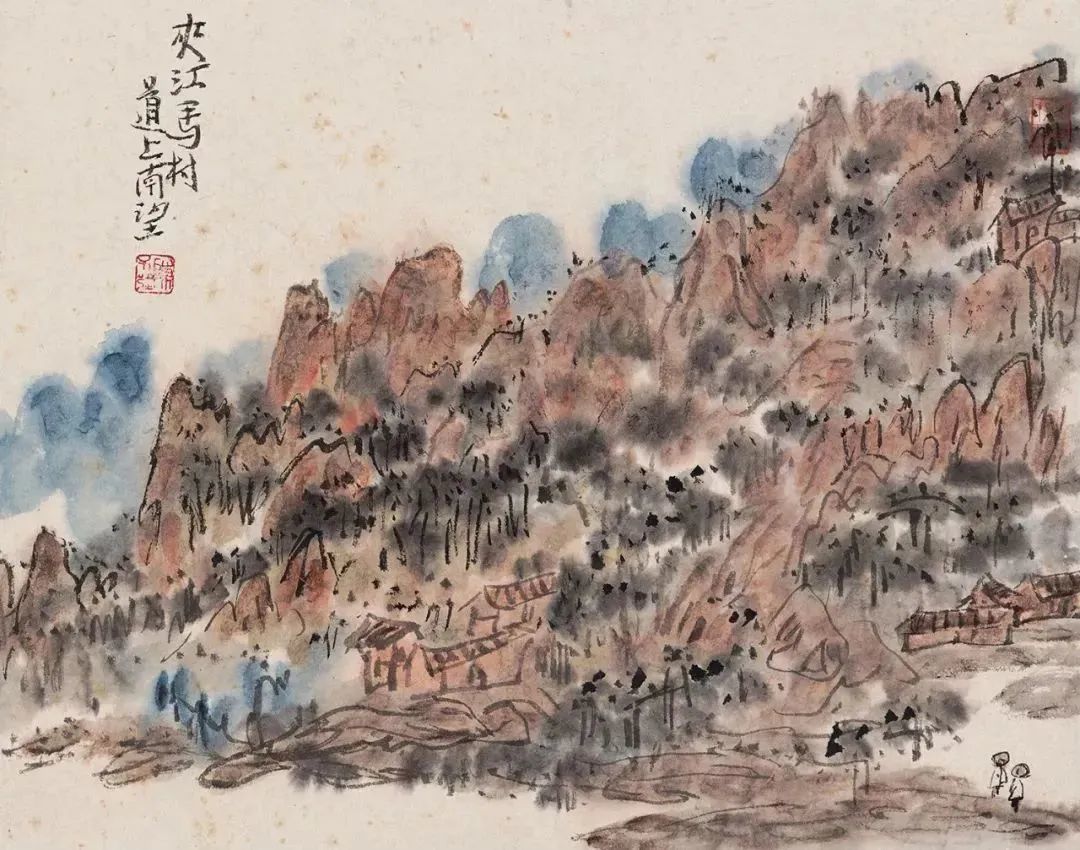 夾江馬村
道上南望